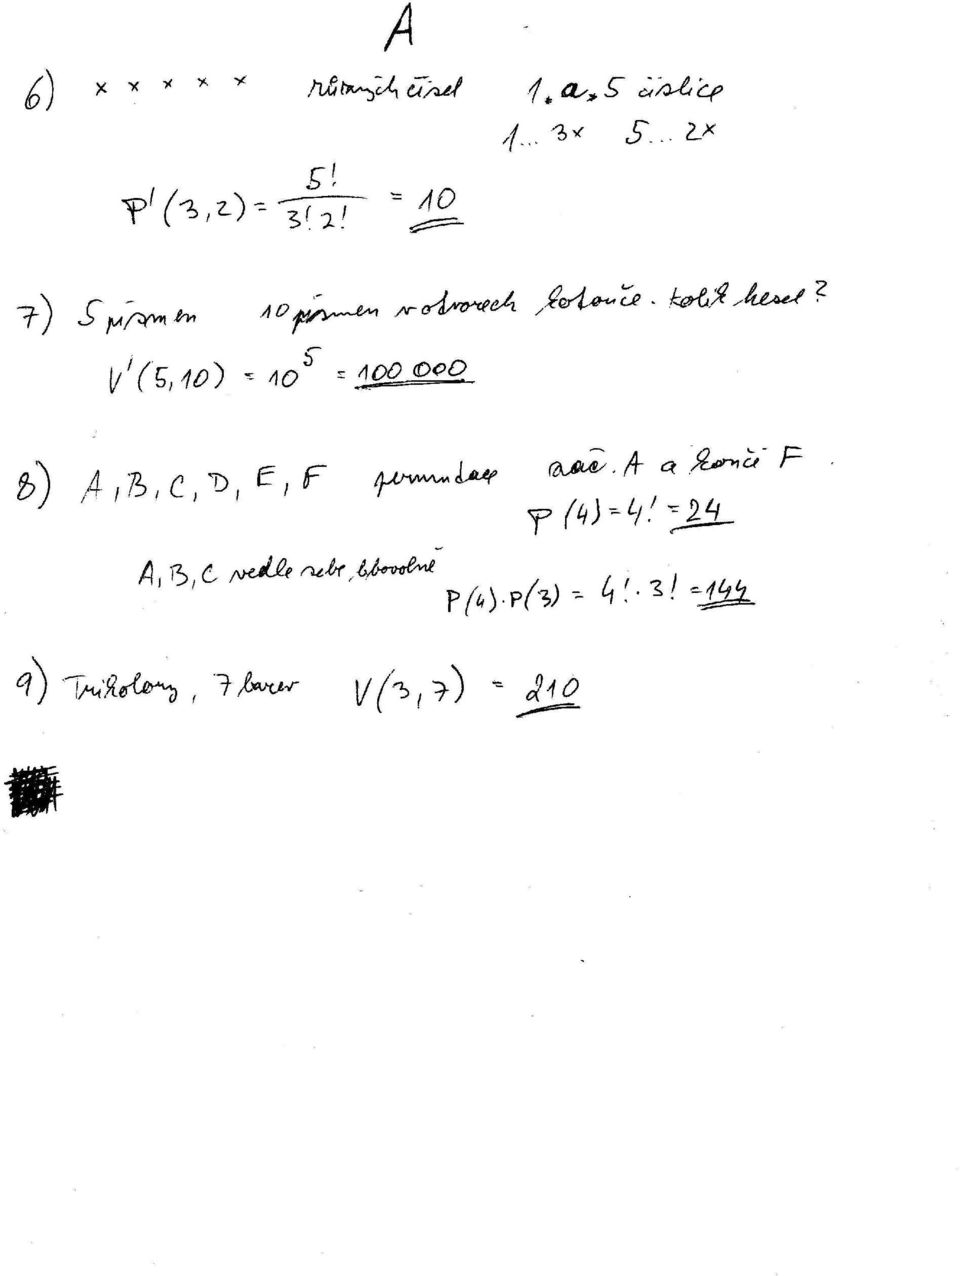 A
6) x x x x x různých čísel 1. a. 5 číslice
1... 3x 5... 2x
P'(3,2) = 5! / 3! 2! = 10
7) 5 písmen 10 písmen v otvorech kotouče. Kolik hesel?
V'(5,10) = 10^5 = 100 000
8) A, B, C, D, E, F permutace zač. A a končí F.
P(4) = 4! = 24
A, B, C vedle sebe, libovolně
P(4).P(3) = 4!.3! = 144
9) Trikolory, 7 barev V(3,7) = 210